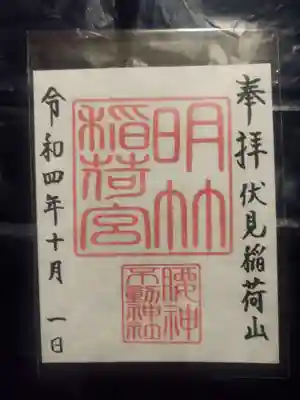 奉拝 伏見稲荷山
明竹
稲荷宮
腰神
不動神社
令和四年十月 一日